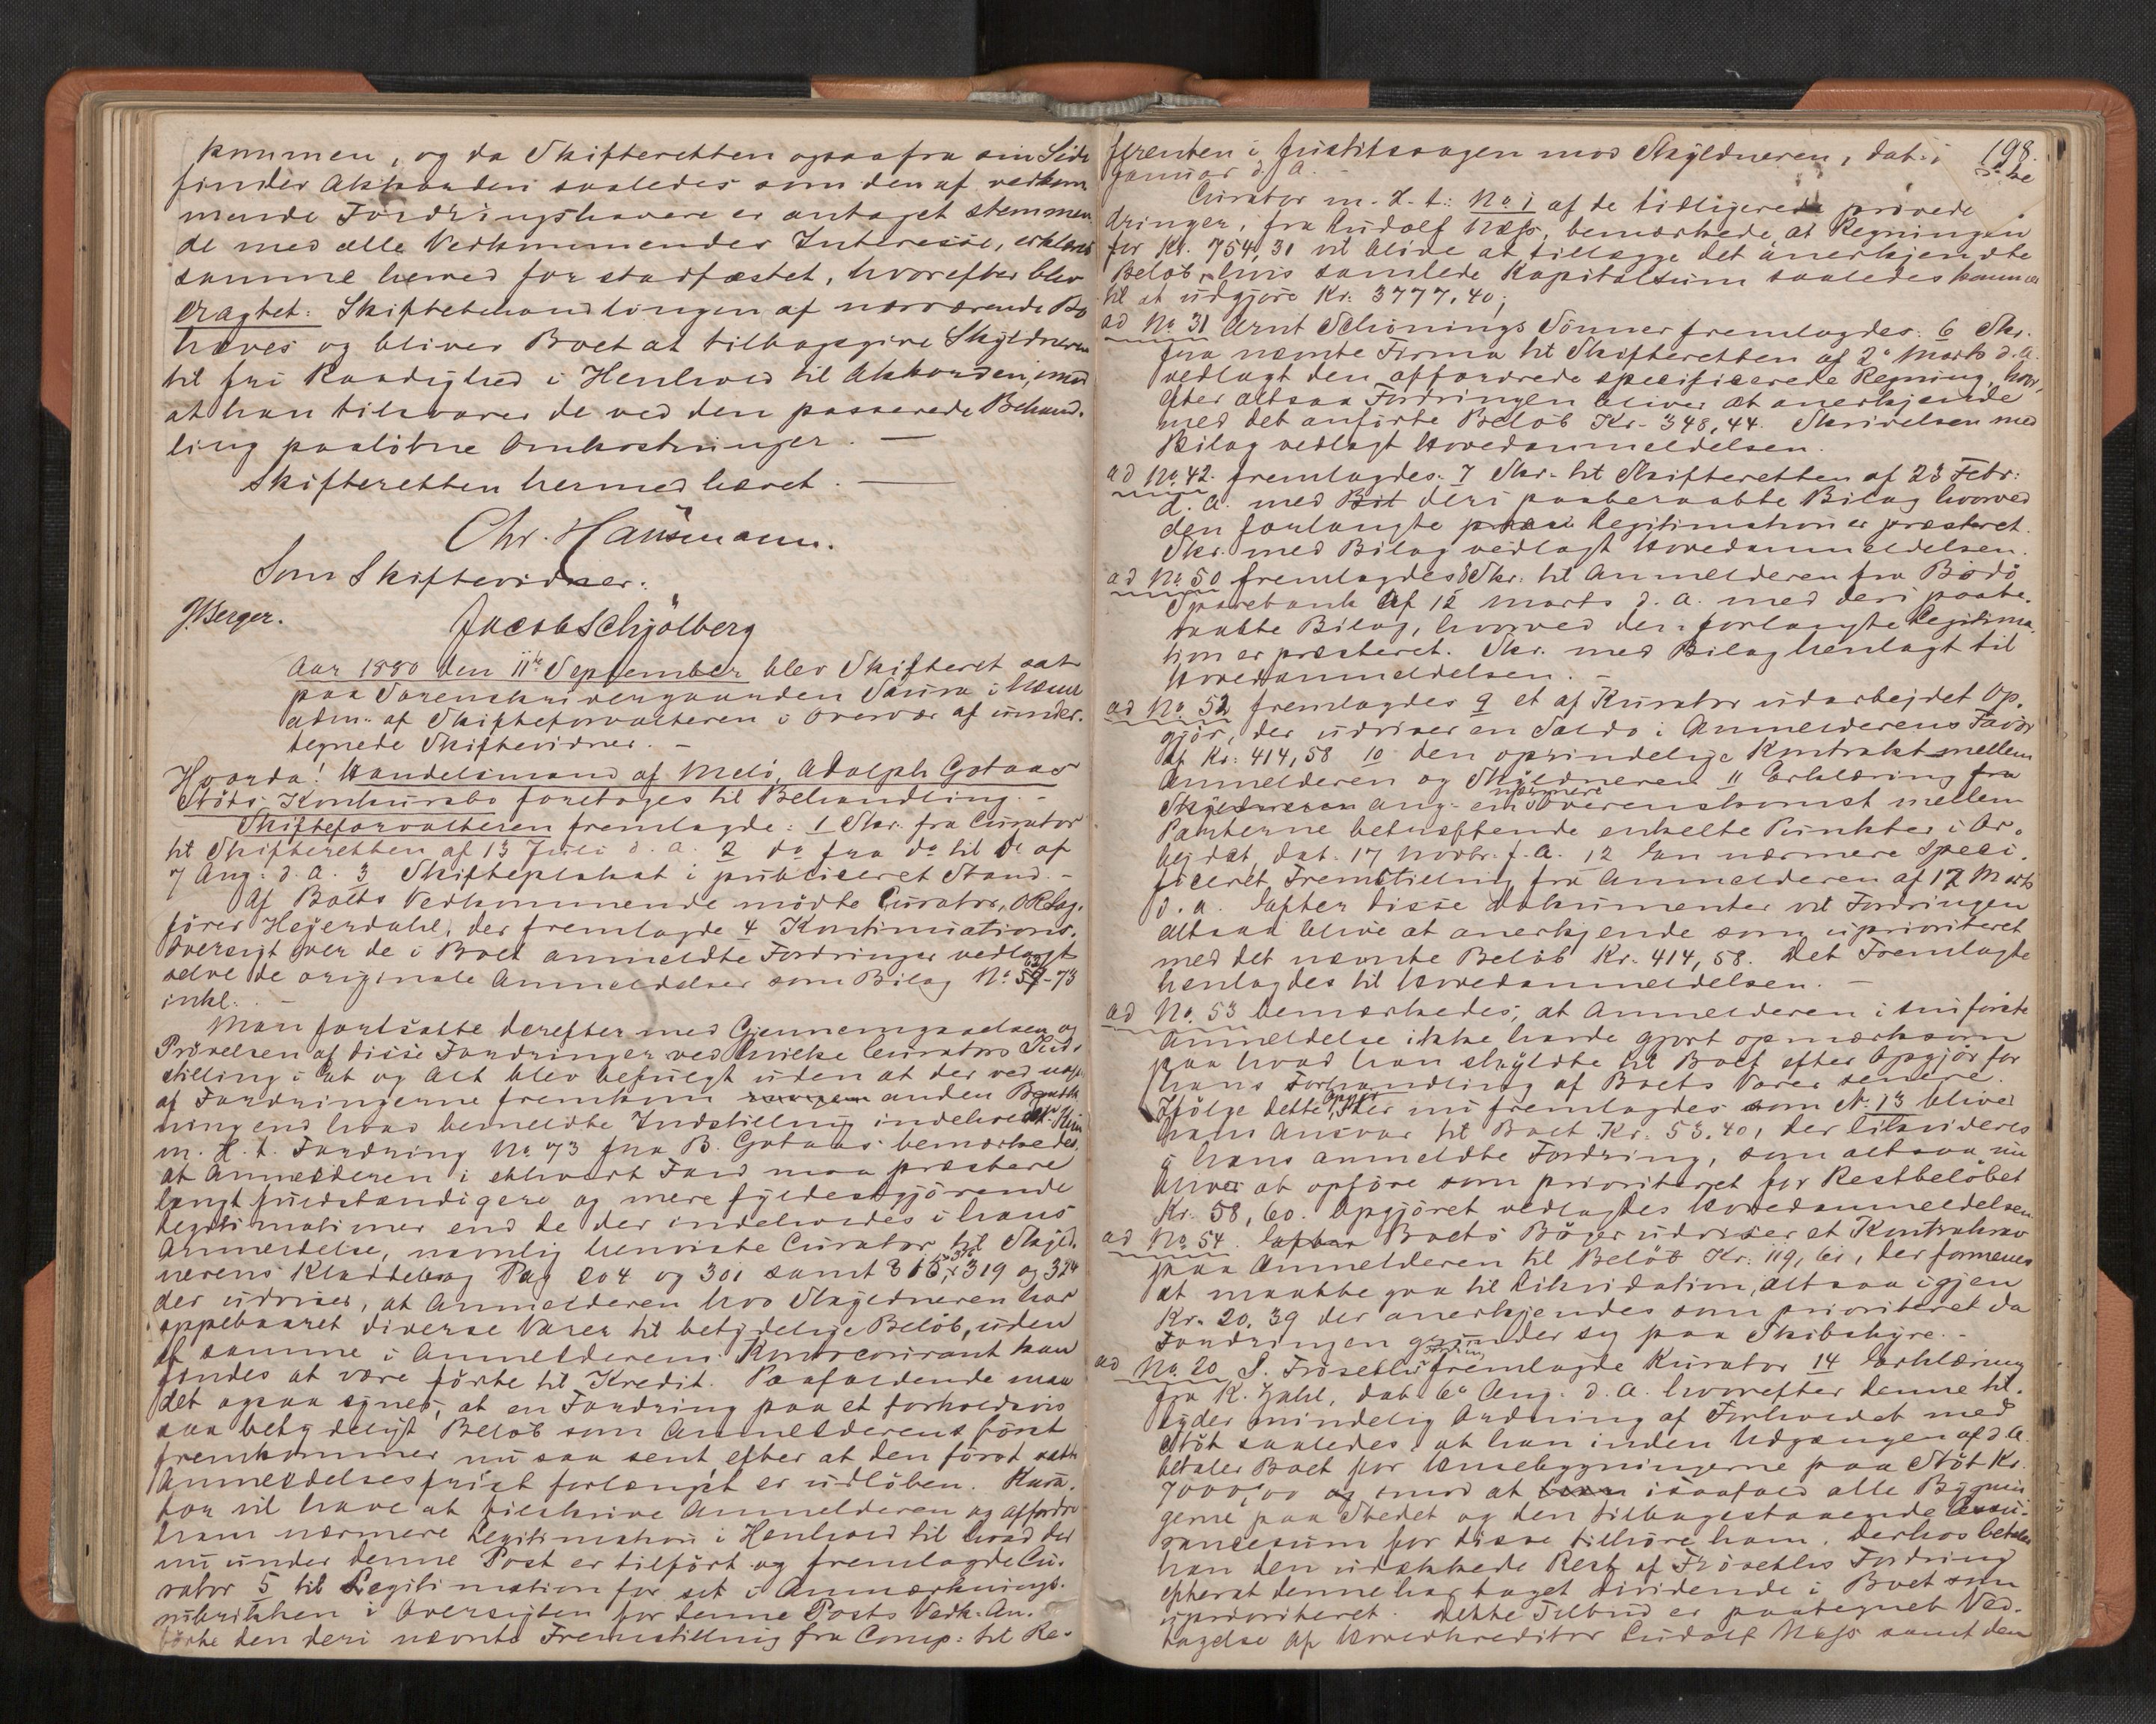 kommen, og da Skifteretten ogsaa fra sin Side
finder Akkorden saaledes som den af vedkom
mende Fordringshavere er antaget stemmen
de med alle Vedkommendes Interesse, erklæres
samme herved for stadfæstet, hvorefter blev
eragtet: Skiftebehandlingen af nærværende Bo
hæves og bliver Boet at tilbagegive Skyldneren
til fri Raadighed i Henhold til Akkorden, imod
at han tilsvarer de ved den passerede Behand-
ling paaløbne Omkostninger. —
Skifteretten hermed hævet. —
Chr. Hausmann.
Som Skiftevidner:
J. Berger.
Jacob Schjølberg
Aar 1880 den 11te September blev Skifteret sat
paa Sorenskrivergaarden Saura i Næsne
adm. af Skifteforvalteren i Overvær af under-
tegnede Skiftevidner. —
Hvorda! Handelsmand af Melø, Adolph Gotaas
Støts Konkursbo foretoges til Behandling. -
Skifteforvalteren fremlagde: 1 Skr. fra Curator
til Skifteretten af 13 Juli d. A. 2 do fra do til do af
7 Aug: d. A. 3 Skifteplakat i publiceret Stand. -
Af Boets Vedkommende mødte Curator, ORsag-
fører Heyerdahl, der fremlagde 4 Kontinuations-
oversigt over de i Boet anmeldte Fordringer vedlagt
selve de originale Anmeldelser som Bilag No 59-73
inkl. -
Man fortsatte derefter med Gjennemgaaelsen og
Prøvelsen af disse Fordringer ved hvilke Curators Ind-
stilling i Et og Alt blev befulgt uden at der ved nogen
af Fordringerne fremkom anden Bemærk
ning end hvad bemeldte Indstilling indeholdt. Kun
m. H. t. Fordring No 73 fra B. Gotaas bemærkedes,
at Anmelderen i ethvert Fald maa præstere
langt fuldstændigere og mere fyldestgjørende
Legitimationer end de der indeholdes i hans
Anmeldelse, navnlig henviste Curator til Skyld-
nerens Kladdebog Pag 204 og 301 samt 316, 319 og 324
der udviser, at Anmelderen hos Skyldneren har
oppebaaret diverse Varer til betydelige Beløb, uden
at samme i Anmelderens Kontocourant kan
findes at være førte til Kredit. Paafaldende maa
det ogsaa synes, at en Fordring paa et forholdsvis
saa betydeligt Beløb som Anmelderens først
fremkommer nu saa sent efter at den først satte
Anmeldelsesfrist forlængst er udløben. Kura-
tor vil have at tilskrive Anmelderen og affordre
ham nærmere Legitimation i Henhold til hvad der
nu under denne Post er tilført og fremlagde Cu-
rator 5 til Legitimation for sit i Anmærknings-
rubrikken i Oversigten for denne Posts Vedk. An-
førte den deri nævnte Fremstilling fra Comp: til Re-
198.
ferenten i Justitssagen mod Skyldneren, dat. i
Januar d. A. -
Curator m. H. t.: No 1 af de tidligere prøvede
dringer, fra Rudolf Næss, bemærkede, at Regningen
for Kr. 754,31 vil blive at tillægge det anerkjendte
Beløb, hvis samlede Kapitalsum saaledes kommer
til at udgjøre Kr: 3777,40;
ad No 31 Arnt Schønings Sønner fremlagdes: 6 Skr.
fra nævnte Firma til Skifteretten af 2den Marts d. A.
vedlagt den affordrede specificerede Regning, hvor-
efter altsaa Fordringen bliver at anerkjende
med det anførte Beløb Kr. 348,44. Skrivelsen med
Bilag vedlagt Hovedanmeldelsen.
ad No 42. fremlagdes: 7 Skr. til Skifteretten af 23 Febr:
d. A. med Bil deri paaberaabte Bilag hvorved
den forlangte Legitimation er præsteret.
Skr. med Bilag vedlagt Hovedanmeldelsen.
ad No 50 fremlagdes 8 Skr: til Anmelderen fra Bodø
Sparebank af 12 Marts d. A. med deri paabe-
raabte Bilag, hvorved den forlangte Legitima-
tion er præsteret. Skr. med Bilag henlagt til
Hovedanmeldelsen. -
ad No 52 fremlagdes 9 et af Kurator udarbejdet Op-
gjør, der udviser en Saldo i Anmelderens Favør
af Kr: 414,58 10 den oprindelige Kontrakt mellem
Anmelderen og Skyldneren 11 Erklæring fra
Skyldneren ang. en nærmere Overenskomst mellem
Parterne betræffende enkelte Punkter i Ar-
bejdet, dat. 17 Novbr. f. A. 12 En nærmere speci-
ficeret Fremstilling fra Anmelderen af 17 Marts
d. A. Efter disse Dokumenter vil Fordringen
altsaa blive at anerkjende som uprioriteret
med det nævnte Beløb Kr. 414,58. Det Fremlagte
henlagdes til Hovedanmeldelsen. —
ad No. 53 bemærkedes, at Anmelderen i sin første
Anmeldelse ikke havde gjort opmærksom
paa hvad han skyldte til Boet efter Opgjør for
hans Forhandling af Boets Varer senere.
Ifølge dette Opgjør, der nu fremlagdes som No 13 bliver
hans Ansvar til Boet Kr. 53.40, der likvideres
i hans anmeldte Fordring, som altsaa nu
bliver at opføre som prioriteret for Restbeløbet
Kr. 58,60. Opgjøret vedlagdes Hovedanmeldelsen
ad No 54. Efter Boets Bøger udviser et Kontrakrav
paa Anmelderen til Beløb Kr. 119,61, der formenes
at maatte gaa til Likvidation, altsaa igjen
Kr. 20,39 der anerkjendes som prioriteret da
Fordringen grunder sig paa Skibshyre. -
ad No. 20 S. Frøseths Fordring fremlagde Kurator 14 Erklæring
fra K. Zahl, dat. 6te Aug. d. A. hvorefter denne til-
byder mindelig Ordning af Forholdet med
Støt saaledes, at han inden Udgangen af d. A.
betaler Boet for Husebygningerne paa Støt Kr.
7000,00 og imod at isaafald alle Bygnin
gerne paa Stedet og den tilbagestaaende Assu-
rancesum for disse tilhøre ham. Derhos betaler
han den udækkede Rest af Frøseths Fordring
efterat denne har taget Dividende i Boet som
uprioriteret. Dette Tilbud er paategnet Ved-
tagelse af Hovedkreditor Rudolf Næss samt den